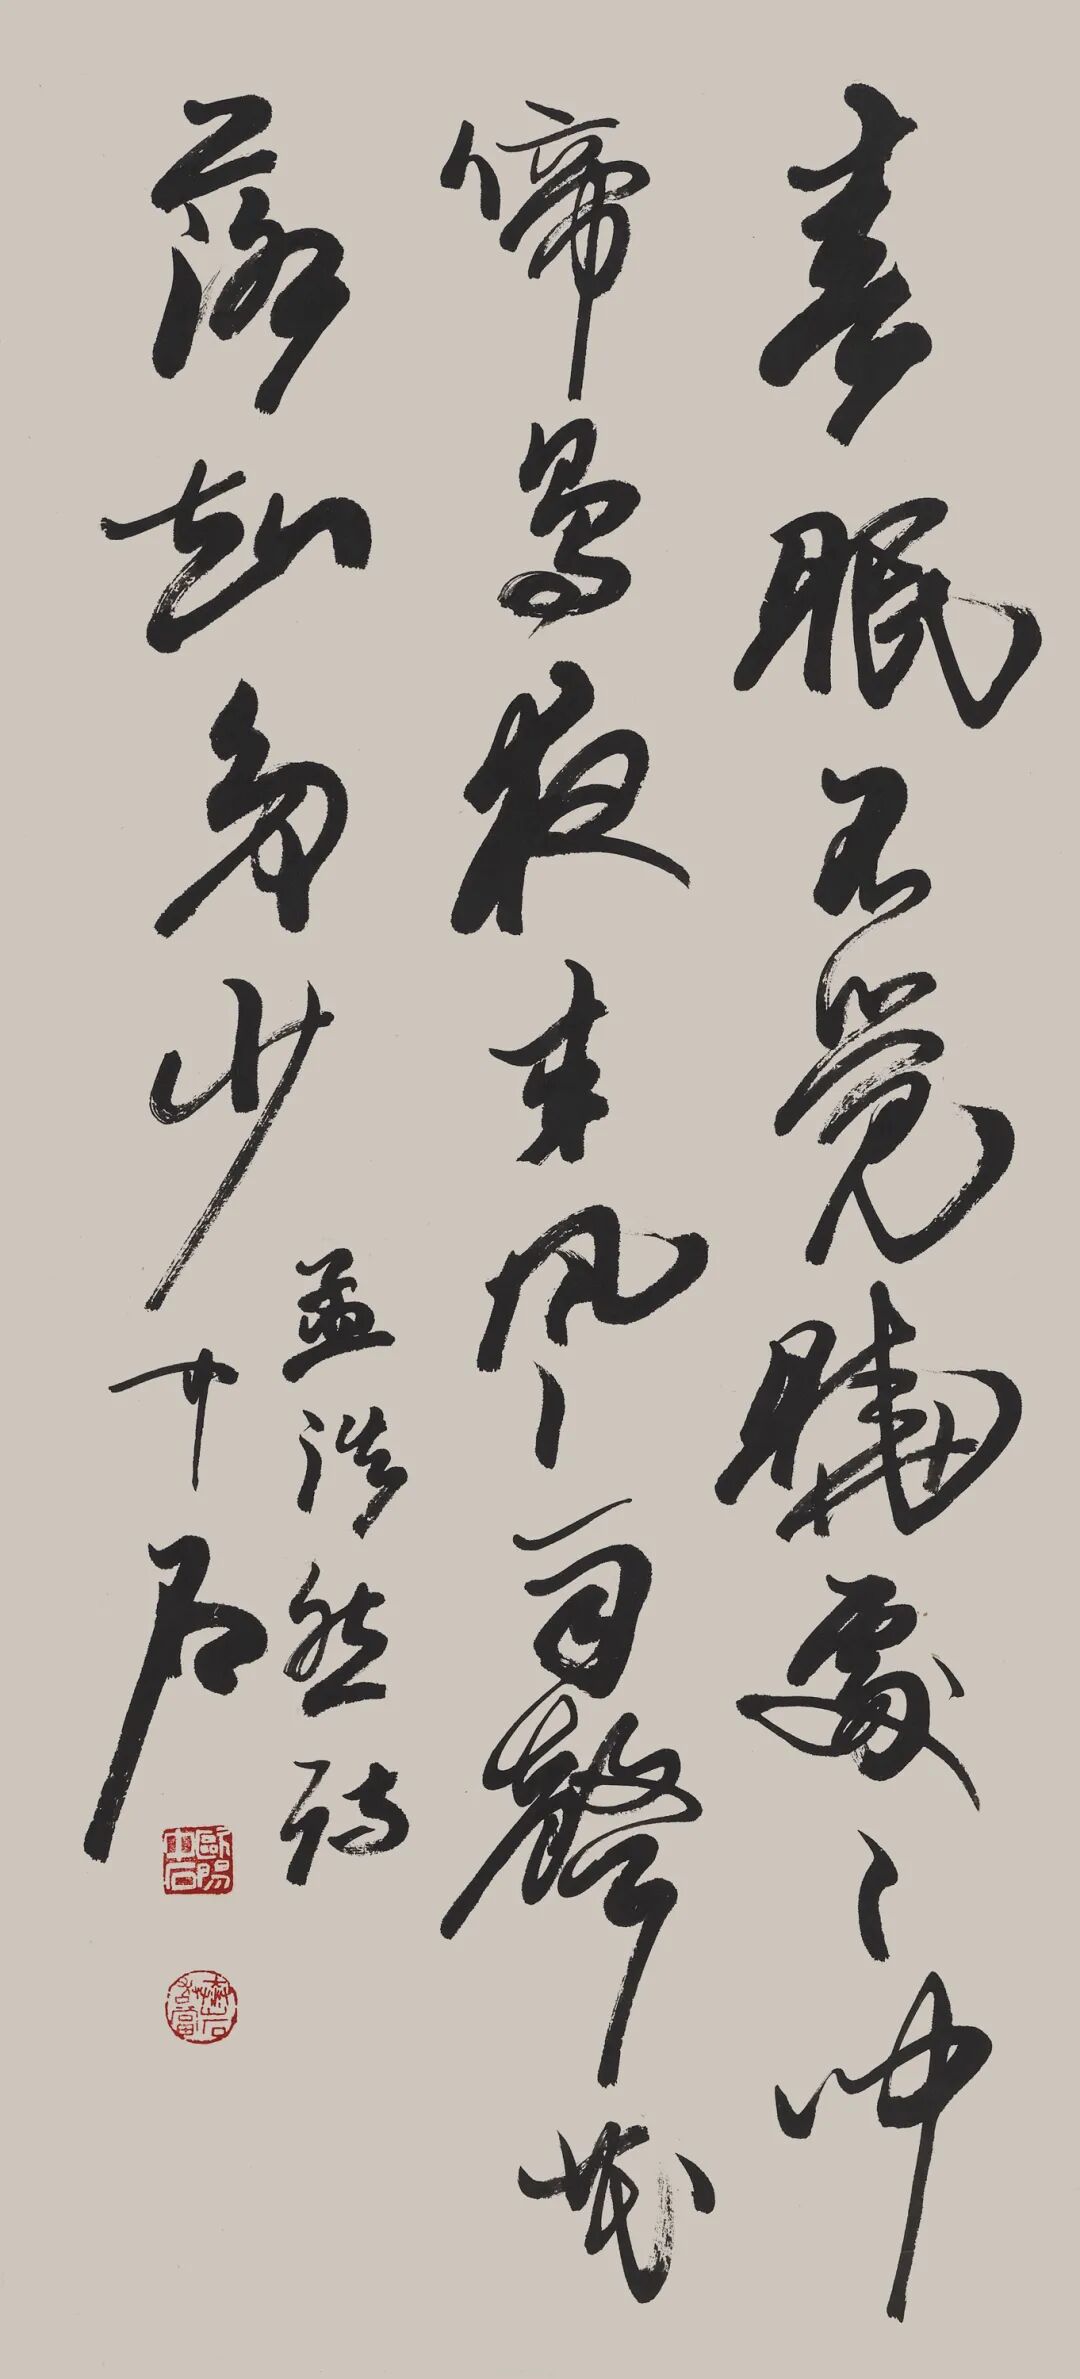 春眠不覺曉處〻聞
啼鳥夜来風雨聲花
落知多少
孟浩然詩
中石
歐陽中石